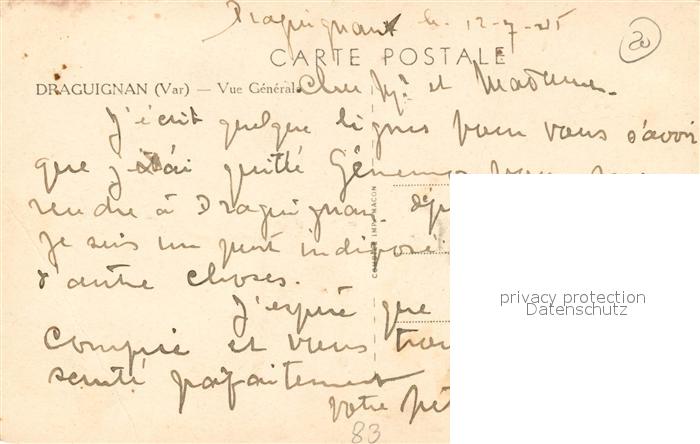 Draguignan le 12-7-25
20
CARTE POSTALE
DRAGUIGNAN (Var) — Vue Générale
Cher Mr et Madame.
J'écrit quelque lignes pour vous s'avoir
que j'ai quitté Gémenos pour
rendre à Draguignan.
Je suis un peut indisposé
d'autre choses.
J'espère que
compris et vous
senté parfaitement
votre
83
COMBIER IMP. MACON
privacy protection
Datenschutz